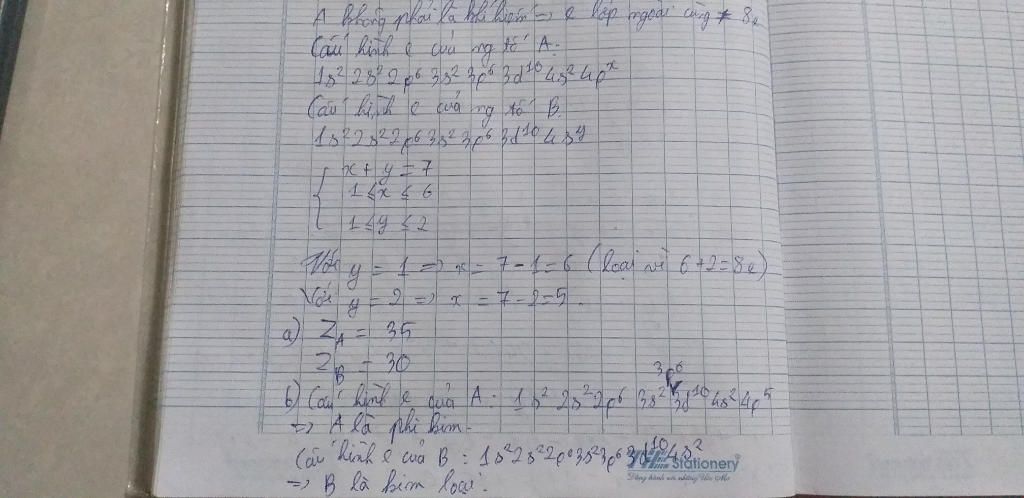 A không phải là khí hiếm => e lớp ngoài cùng ≠ 8e
Cấu hình e của ng tố A:
1s² 2s² 2p⁶ 3s² 3p⁶ 3d¹⁰ 4s² 4pˣ
Cấu hình e của ng tố B.
1s² 2s² 2p⁶ 3s² 3p⁶ 3d¹⁰ 4sʸ
{ x + y = 7
1 ≤ x ≤ 6
1 ≤ y ≤ 2
Với y = 1 => x = 7 - 1 = 6 (loại vì 6 + 2 = 8e)
Với y = 2 => x = 7 - 2 = 5.
a) Z_A = 35
Z_B = 30
b) Cấu hình e của A: 1s² 2s² 2p⁶ 3s² 3p⁶ 3d¹⁰ 4s² 4p⁵
=> A là phi kim.
Cấu hình e của B: 1s² 2s² 2p⁶ 3s² 3p⁶ 3d¹⁰ 4s²
=> B là kim loại.
Stationery